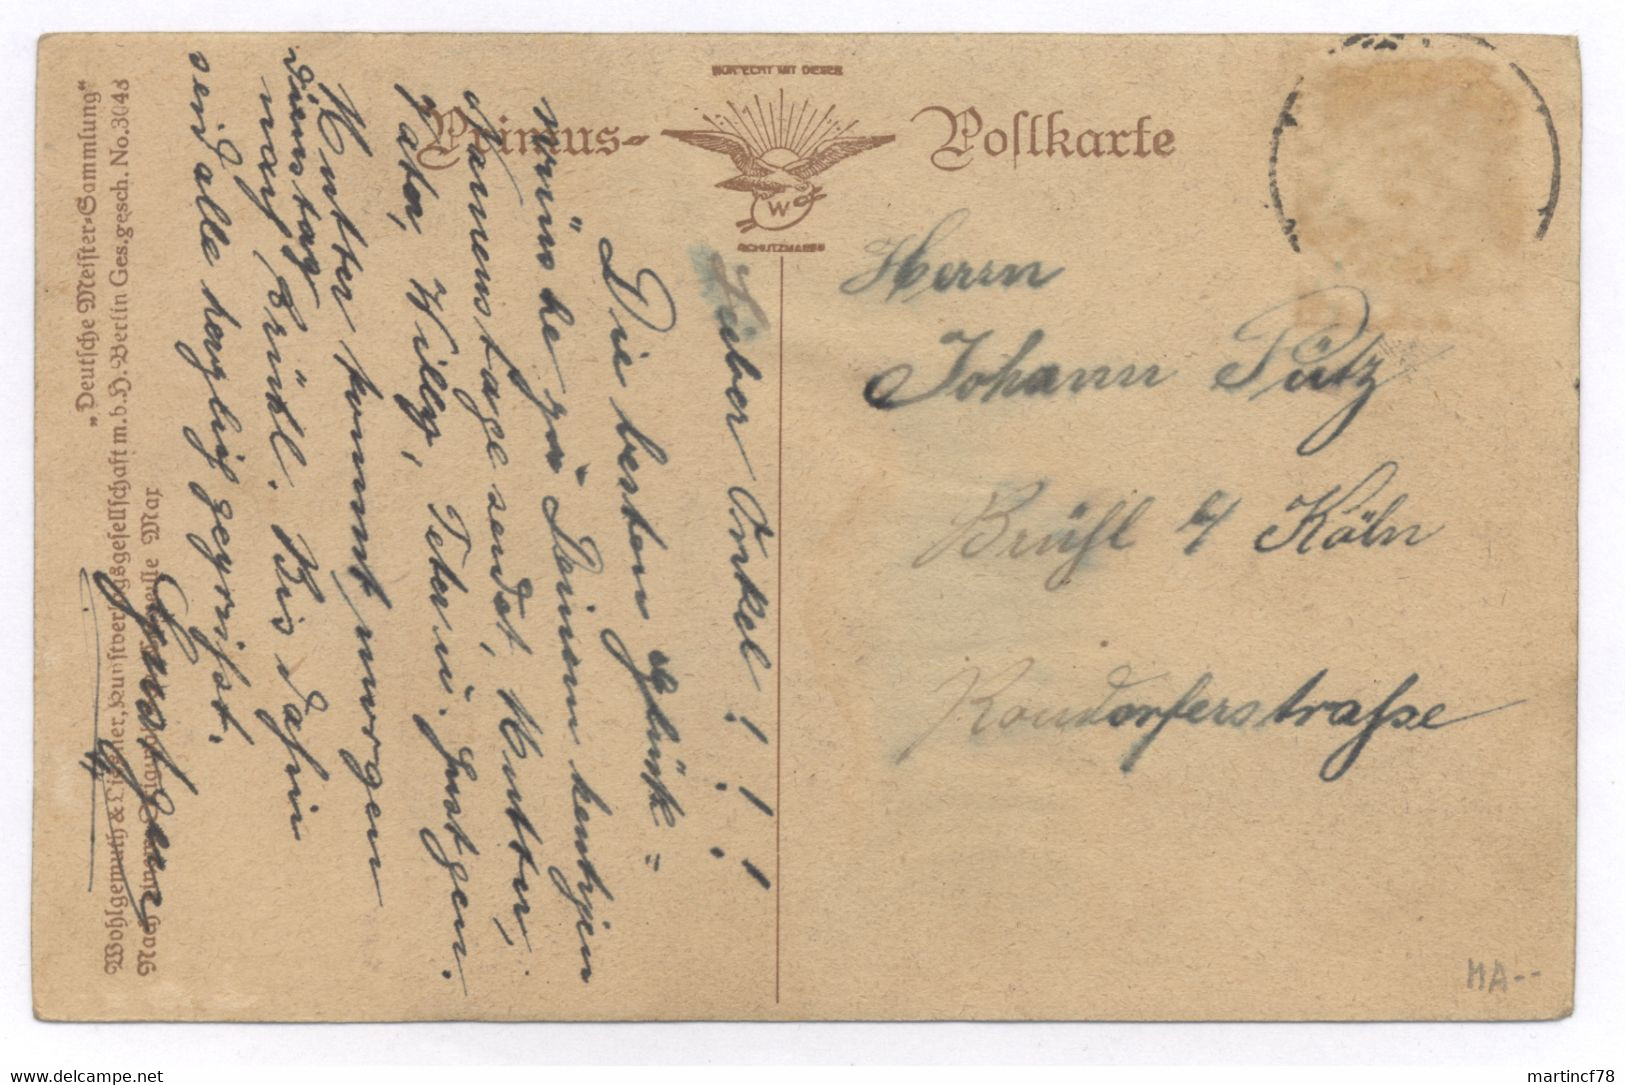 NUR ECHT MIT DIESER
Primus- Postkarte
W
SCHUTZMARKE
Herrn
Johann Pütz
Brühl b/ Köln
Rondorferstraße
Lieber Onkel!!!!
Die besten Glück=
wünsche zu Deinem heutigen
Namenstage sendet, Mutter,
Vater, Willy, Peter u. Justchen.
Mutter kommt morgen
Dienstag
nach Brühl. Bis dahin
seid alle herzlich gegrüßt.
"Deutsche Meister-Sammlung"
Wohlgemuth & Lissner, Kunstverlagsgesellschaft m.b.H. Berlin Ges.gesch. No. 3048
Nach einem
MA--
martincf78